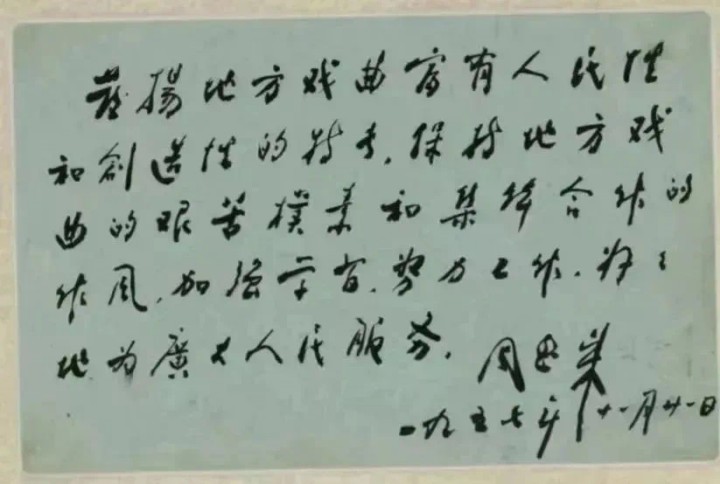 發揚地方戏曲富有人民性
和创造性的特長,保持地方戏
曲的艰苦樸素和集体合作的
作风,加强学習,努力工作,好好
地为廣大人民服务。
周恩来
一九五七年十一月廿一日